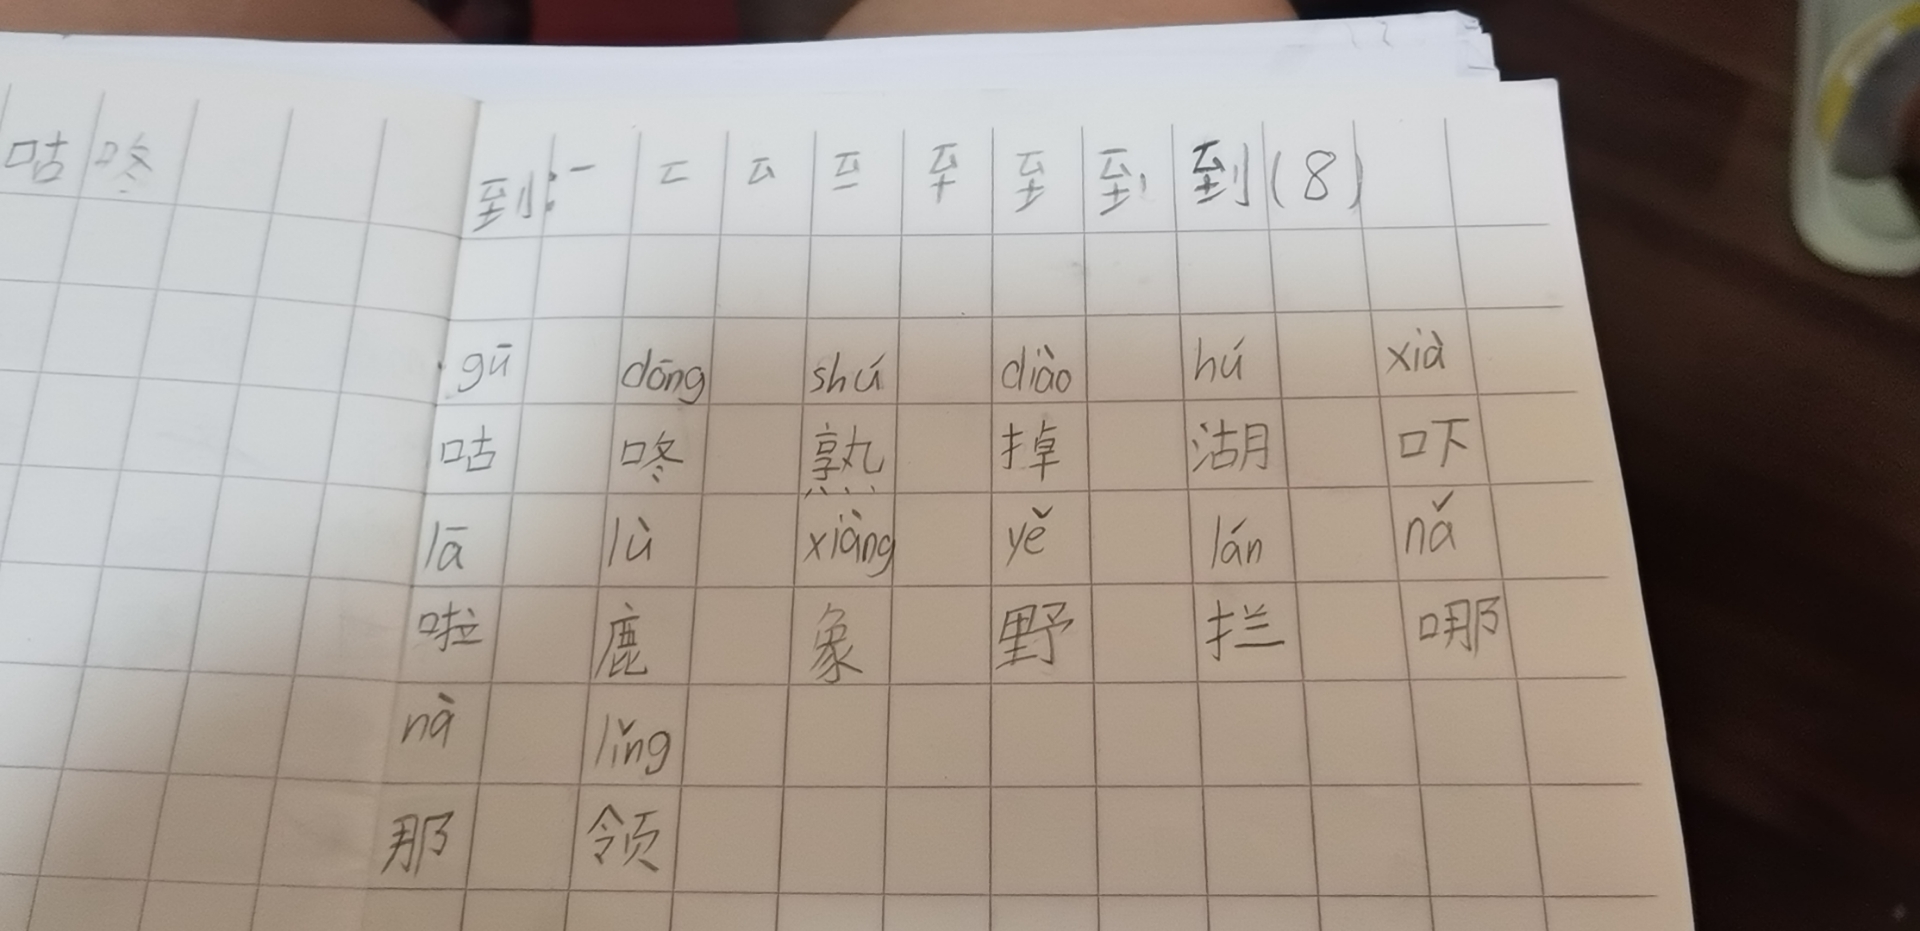 咕咚
到:一 二 云 至 至 至 到 到(8)
gū dōng shú diào hú xià
咕 咚 熟 掉 湖 吓
lā lù xiàng yě lán nǎ
啦 鹿 象 野 拦 哪
nà lǐng
那 领